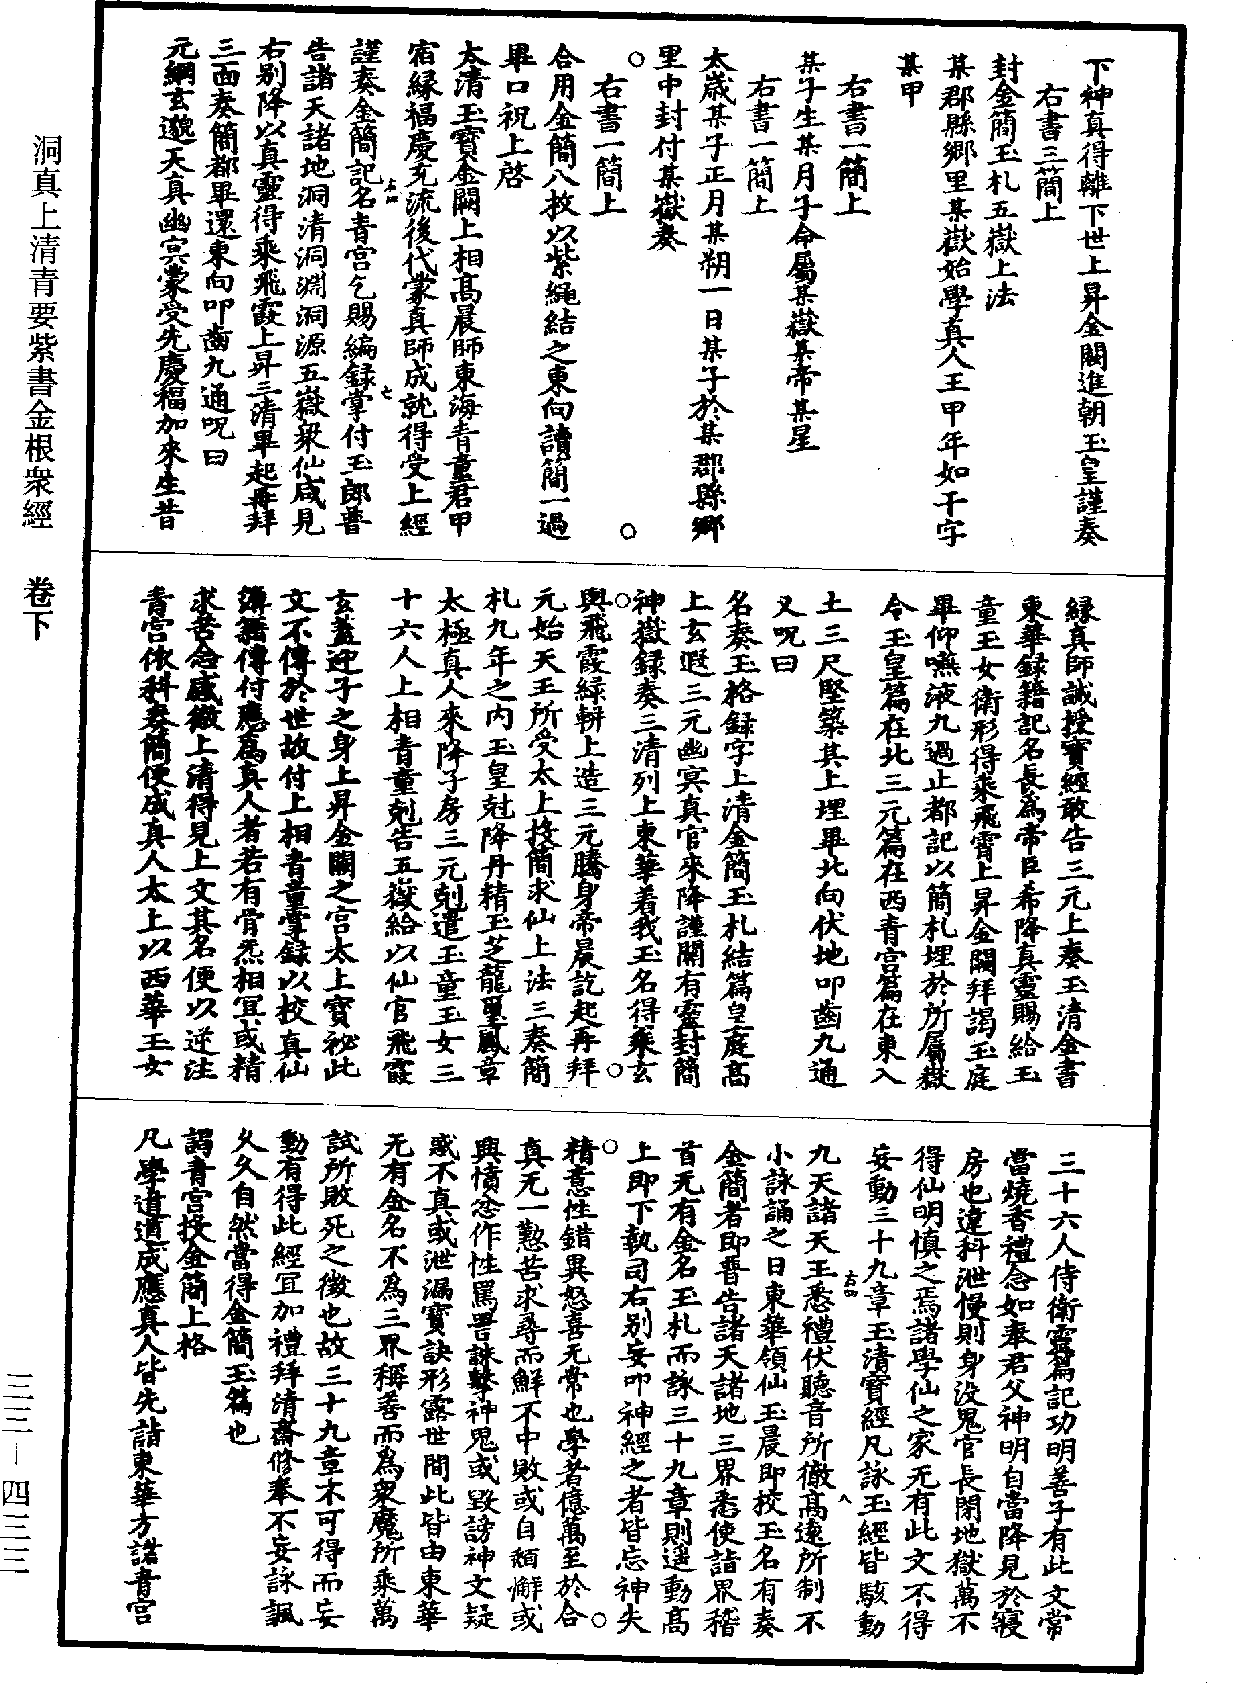 下神真得離下世上昇金闕進朝玉皇謹奏
右書三簡上
封金簡玉札五嶽上法
某郡縣鄉里某嶽始學真人王甲年如干字
某甲
右書一簡上
某子生某月子命屬某嶽某帝某星
右書一簡上
太歲某子正月某朔一日某子於某郡縣鄉
里中封付某嶽奏
右書一簡上
合用金簡八枚以紫繩結之東向讀簡一過
畢口祝上啓
太清玉寶金闕上相高晨師東海青童君甲
宿緣福慶充流後代蒙真師成就得受上經
謹奏金簡記名青宮乞賜編錄掌付玉郎普
告諸天諸地洞清洞淵洞源五嶽衆仙咸見
右別降以真靈得乘飛霞上昇三清畢起再拜
三面奏簡都畢還東向叩齒九通呪曰
元綱玄邈天真幽冥蒙受先慶福加來生昔
緣真師誠授寶經敢告三元上奏玉清金書
東華録籍記名長為帝臣希降真靈賜給玉
童玉女衛形得乘飛霄上昇金闕拜謁玉庭
畢仰嚥液九過止都記以簡札埋於所屬嶽
令玉皇篇在北三元篇在西青宮篇在東入
土三尺堅築其上埋畢北向伏地叩齒九通
又呪曰
名奏玉格録字上清金簡玉札結篇皇庭高
上玄遐三元幽冥真官來降謹關有靈封簡
神嶽録奏三清列上東華着我玉名得乘玄
輿飛霞緑軿上造三元騰身帝晨訖起再拜
元始天王所受太上投簡求仙上法三奏簡
札九年之內玉皇尅降丹精玉芝龍璽鳳章
太極真人來降子房三元尅遣玉童玉女三
十六人上相青童尅告五嶽給以仙官飛霞
玄蓋迎子之身上昇金闕之宮太上寶祕此
文不傳於世故付上相青童掌録以校真仙
傳付應為真人者若有骨炁相冝或精
求苦念感徹上清得見上文其名便以逆注
青宮依科奏簡便成真人太上以西華玉女
三十六人侍衛靈篇記功明善子有此文常
當燒香禮念如奉君父神明自當降見於寢
房也違科泄慢則身没鬼官長閉地獄萬不
得仙明慎之焉諸學仙之家无有此文不得
妄動三十九章玉清寶經凡詠玉經皆駭動
九天諸天王悉禮伏聽音所徹高遠所制不
小詠誦之日東華領仙玉晨即校玉名有奏
金簡者即普告諸天諸地三界悉使詣界稽
首无有金名玉札而詠三十九章則遥動高
上即下執司右別妄叩神經之者皆忘神失
精意性錯異怒喜无常也學者億萬至於合
真无一懃苦求尋而鮮不中敗或自頽懈或
興憤忿作性罵詈誅擊神鬼或毀謗神文疑
惑不真或泄漏寶訣形露世間此皆由東華
无有金名不為三界稱善而為衆魔所乘萬
試所敗死之徵也故三十九章不可得而妄
動有得此經冝加禮拜清齋修奉不妄詠諷
久久自然當得金簡玉篇也
謁青宮投金簡上格
凡學道道成應真人皆先詣東華方諸青宮
洞真上清青要紫書金根衆經　卷下
三三—四三三
右四
七
右四
八